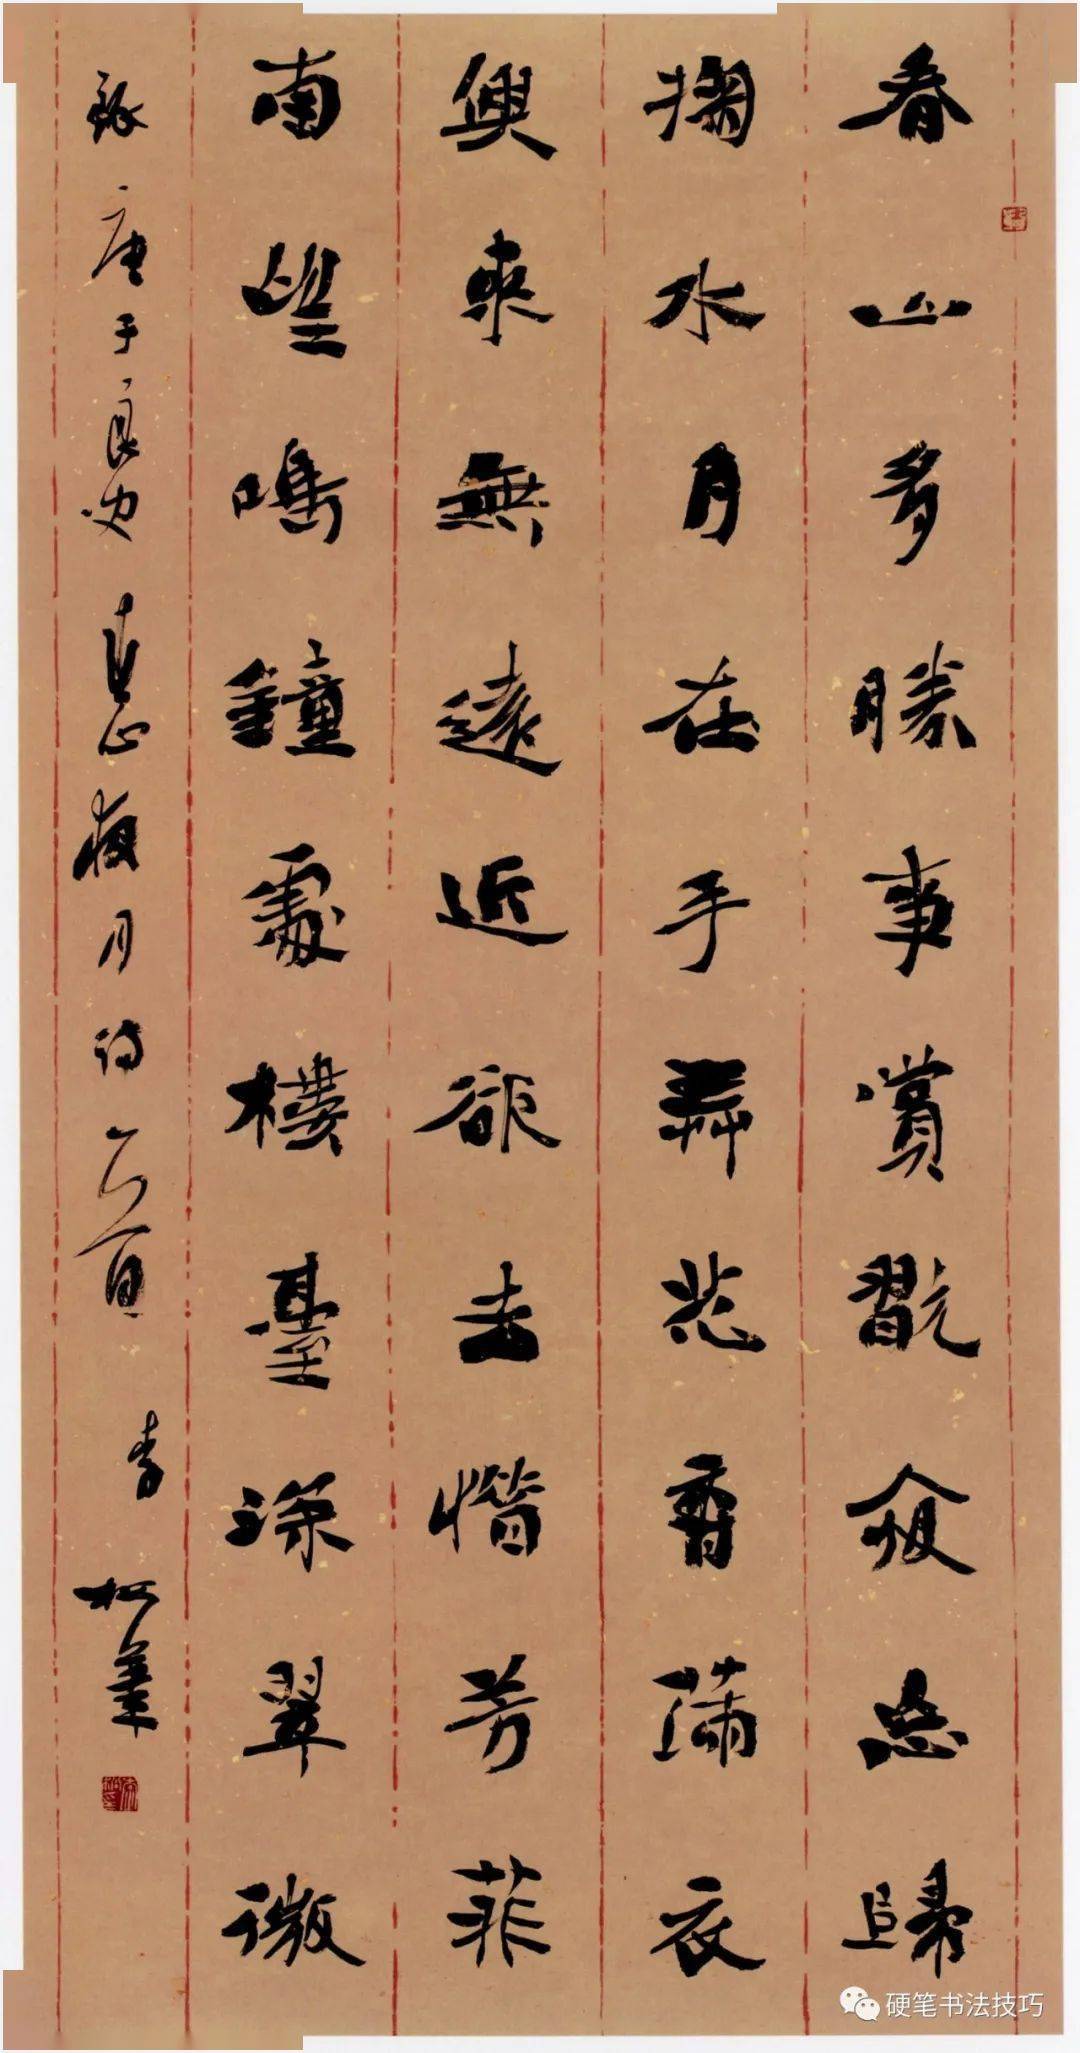 春山多勝事賞翫夜忘歸
掬水月在手弄花香滿衣
興來無遠近欲去惜芳菲
南望鳴鐘處樓臺深翠微
錄唐于良史春山夜月诗一首 李松
硬笔书法技巧